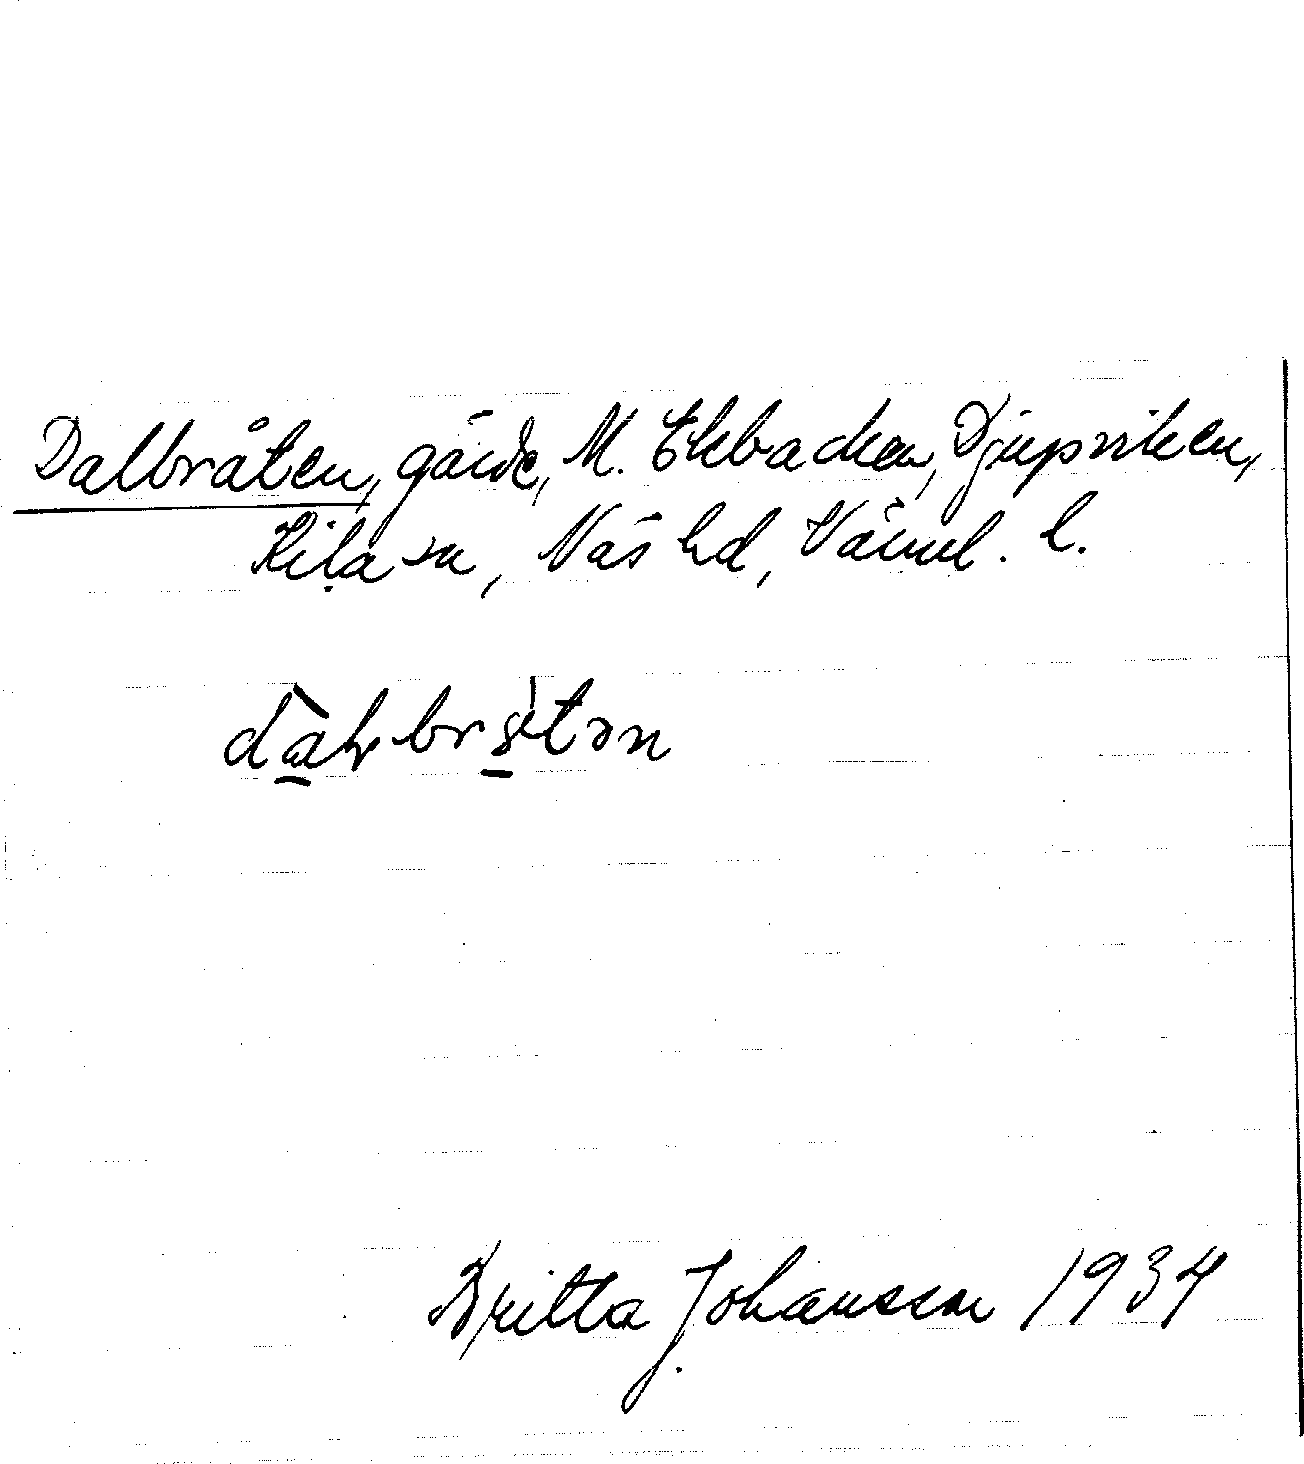 Dalbråten, gärde, M. Ekbacken, Djupviken,
Kila sn, Näs hd, Värml. l.
Britta Johansson 1934